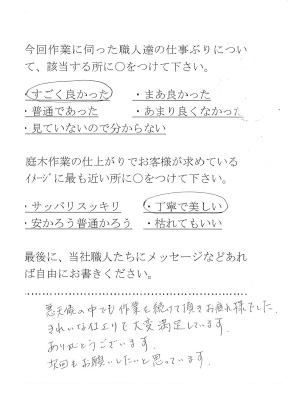 今回作業に伺った職人達の仕事ぶりについ
て、該当する所に○をつけて下さい。
・すごく良かった ・まあ良かった
・普通であった ・あまり良くなかった
・見ていないので分からない
庭木作業の仕上がりでお客様が求めている
イメージに最も近い所に○をつけて下さい。
・サッパリスッキリ ・丁寧で美しい
・安かろう普通かろう ・枯れてもいい
最後に、当社職人たちにメッセージなどあれ
ば自由にお書きください。
悪天候の中でも作業を続けて頂きお疲れ様でした。
きれいな仕上りで大変満足しています。
ありがとうございます。
次回もお願いしたいと思っています。